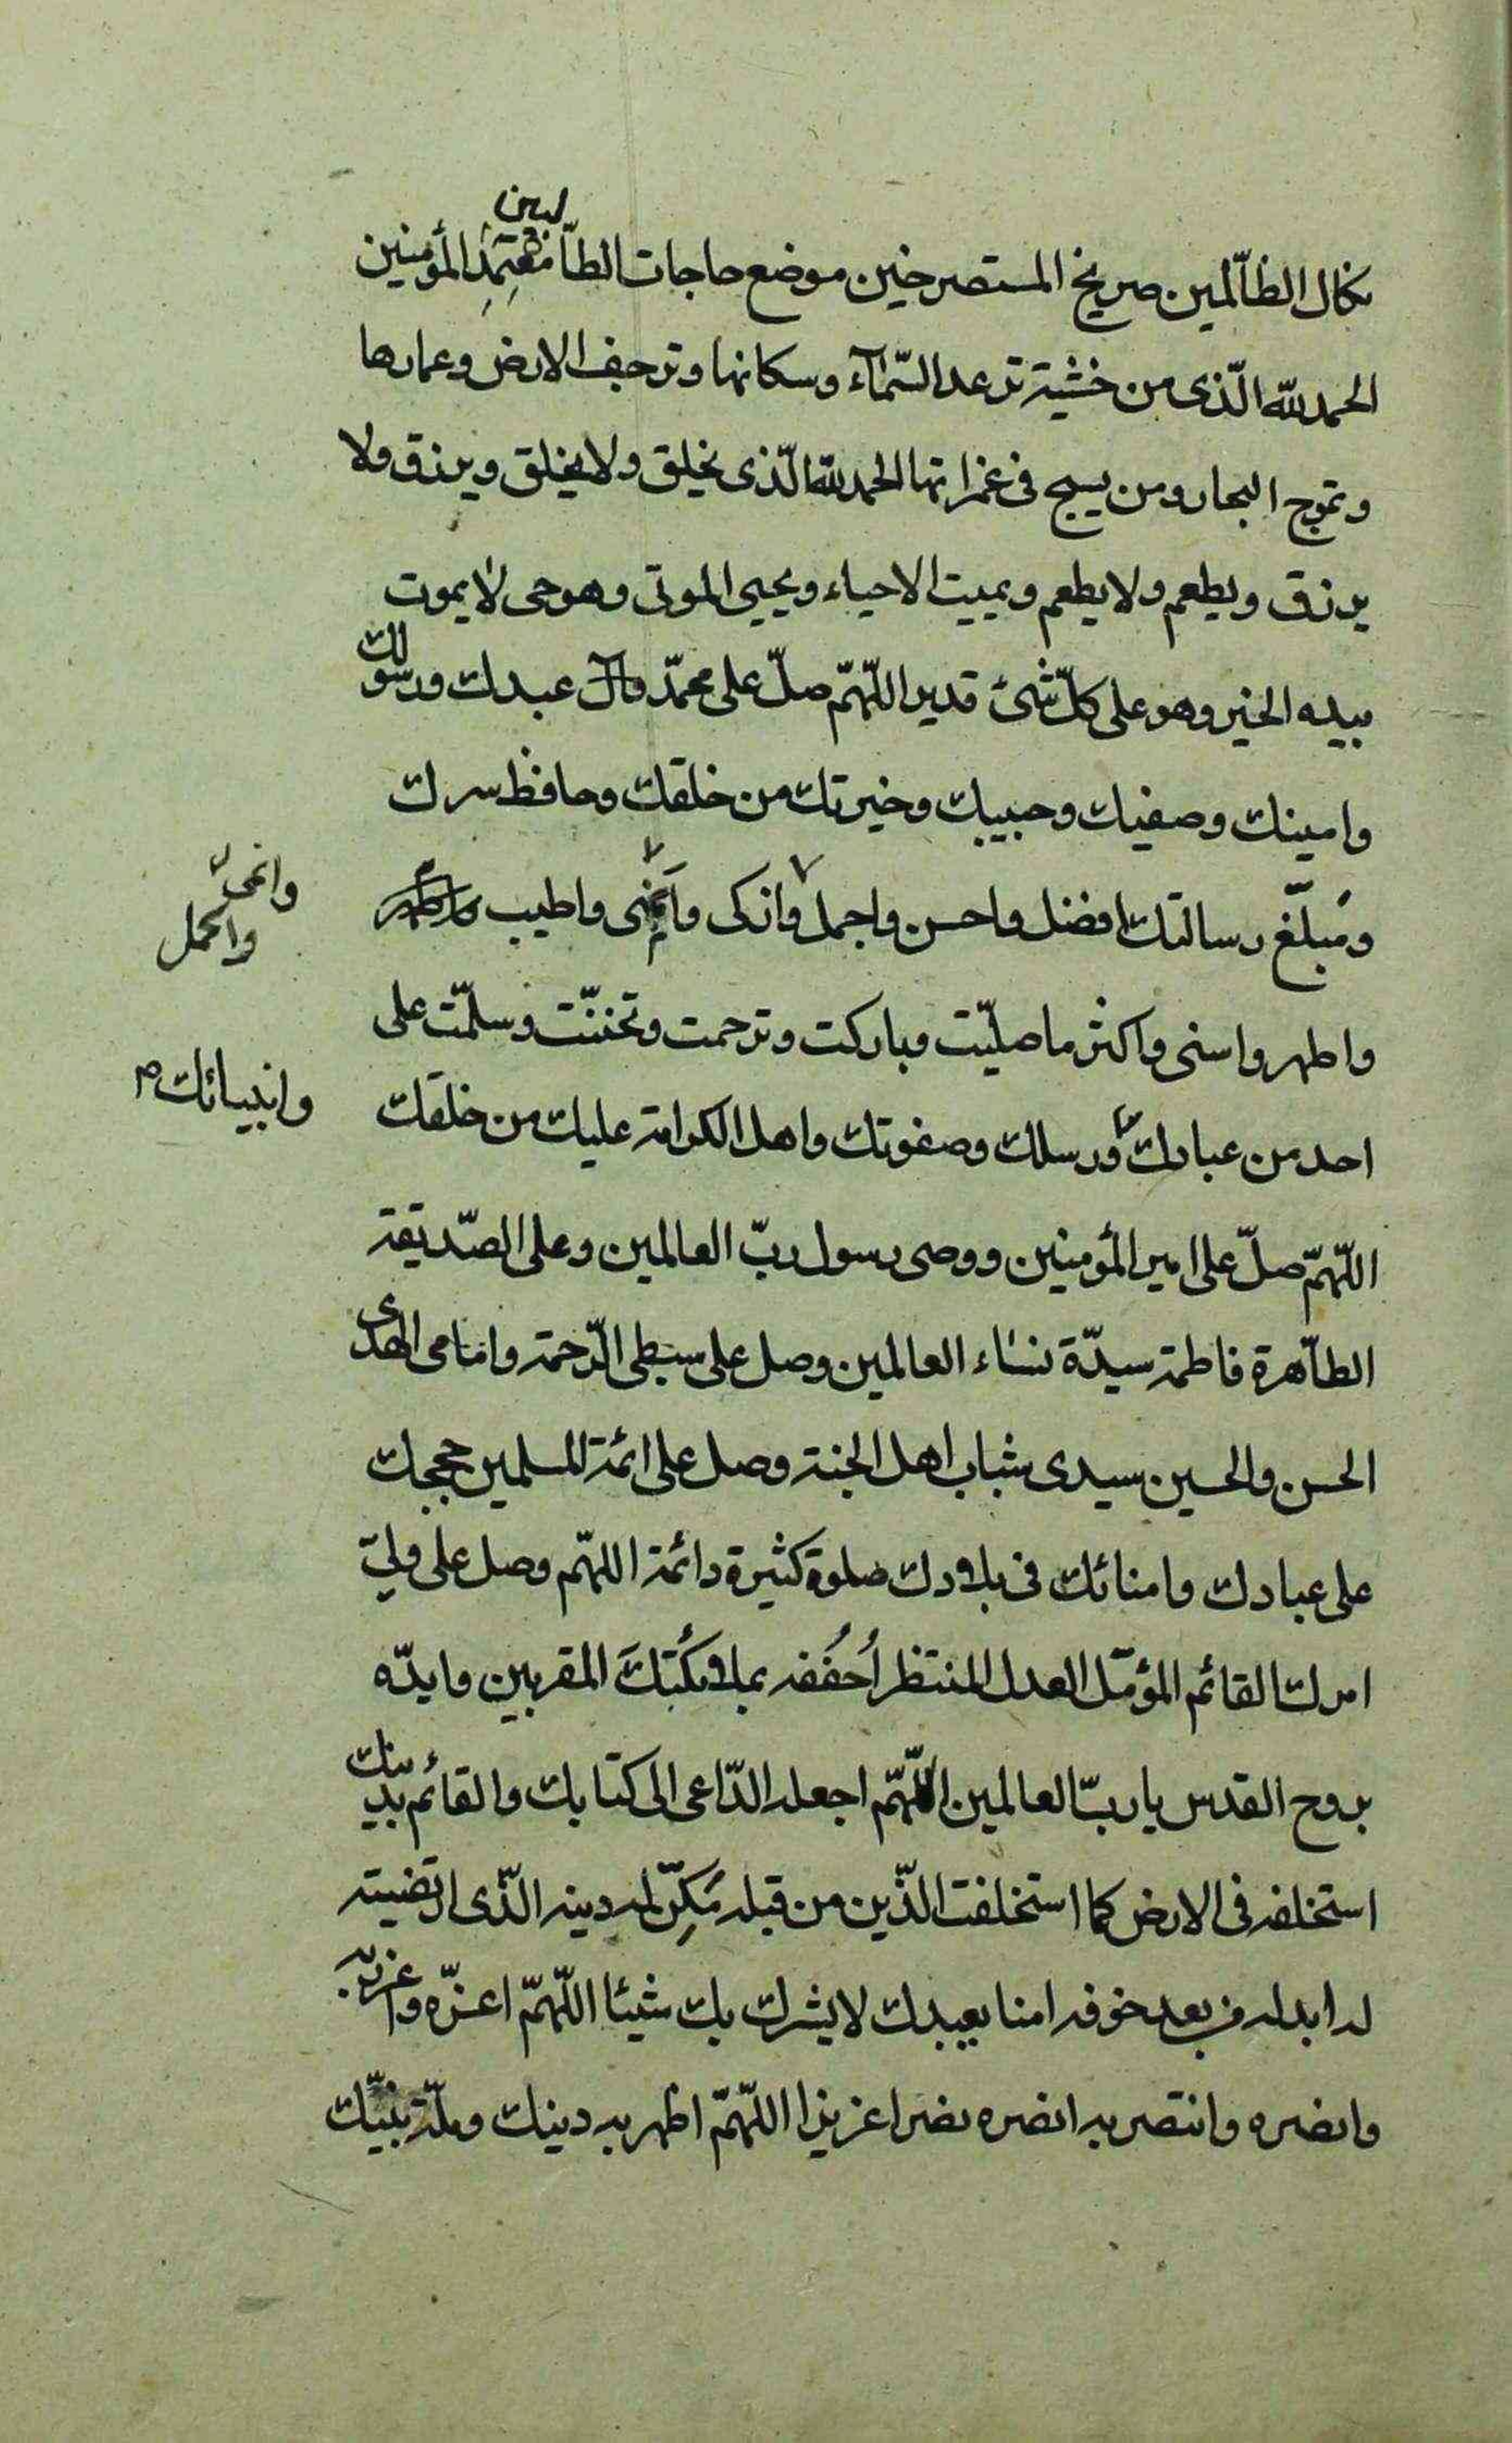 نكال الظّالمين صريخ المستصرخين موضع حاجات الطّالبين معتمد المؤمنين
الحمد لله الّذى من خشية ترعد السّمآء وسكانها وترجف الارض وعمارها
وتموج البحار ومن يسبح فى غمراتها الحمد لله الّذى يخلق ولا يخلق ويرزق ولا
يرزق ويطعم ولا يطعم ويميت الاحياء ويحيى الموتى وهو حى لا يموت
بيده الخير وهو على كلّ شىء قدير اللّهمّ صلّ على محمّد وآل عبدك ورسولك
وامينك وصفيك وحبيبك وخيرتك من خلقك وحافظ سرك
ومبلّغ رسالتك افضل واحسن واجمل وازكى وانمى واطيب
وانمى
واكمل
واطهر واسنى واكثر ما صلّيت وباركت وترحمت وتحننّت وسلمّت على
احد من عبادك ورسلك وصفوتك واهل الكرامة عليك من خلقك
وانبيائك
اللّهمّ صلّ على امير المؤمنين ووصى رسول ربّ العالمين وعلى الصّديقة
الطّاهرة فاطمة سيدّة نساء العالمين وصل على سبطى الرّحمة وامامى الهدى
الحسن والحسين سيدى شباب اهل الجنة وصل على ائمة المسلمين حججك
على عبادك وامنائك فى بلادك صلوة كثيرة دائمة اللهمّ وصل على وليّ
امرك القائم المؤمّل العدل المنتظر اُحفُفه بملائكتك المقربين وايدّه
بروح القدس يا ربّ العالمين اللّهمّ اجعله الدّاعى الى كتابك والقائم بدينك
استخلفه فى الارض كما استخلفت الذّين من قبله مَكِّن له دينه الذّى ارتضيته
له ابدله من بعد خوفه امنا يعبدك لا يشرك بك شيئا اللّهمّ اعزّه واعزز به
وانصره وانتصر به انصره نصرا عزيزا اللّهمّ اظهر به دينك وملّة نبيّك